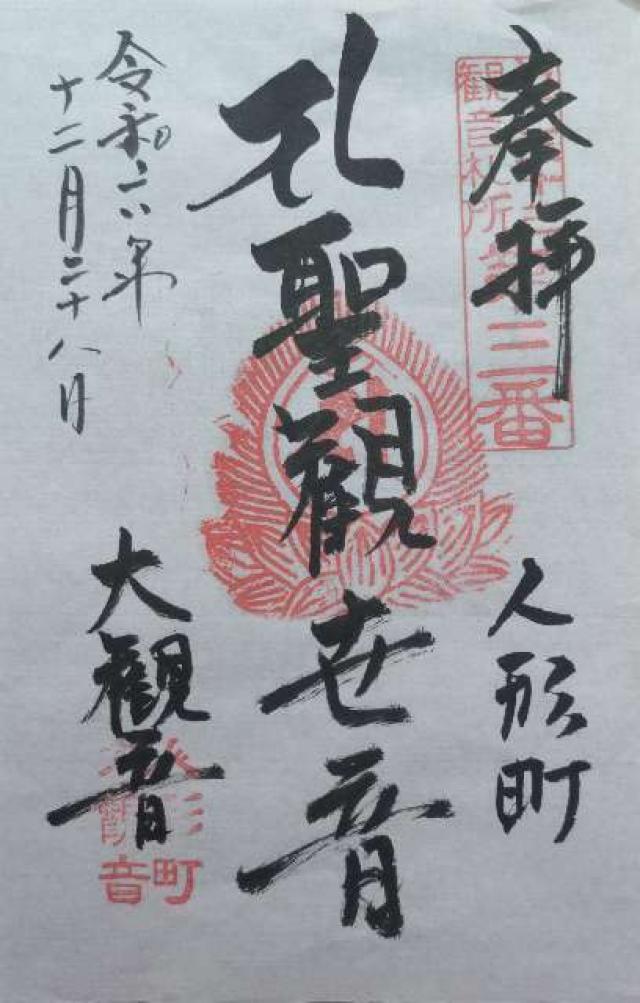 奉拝
観音札所第三番
人形町
聖觀世音
令和六年
十二月二十八日
大觀音
人形町
觀音